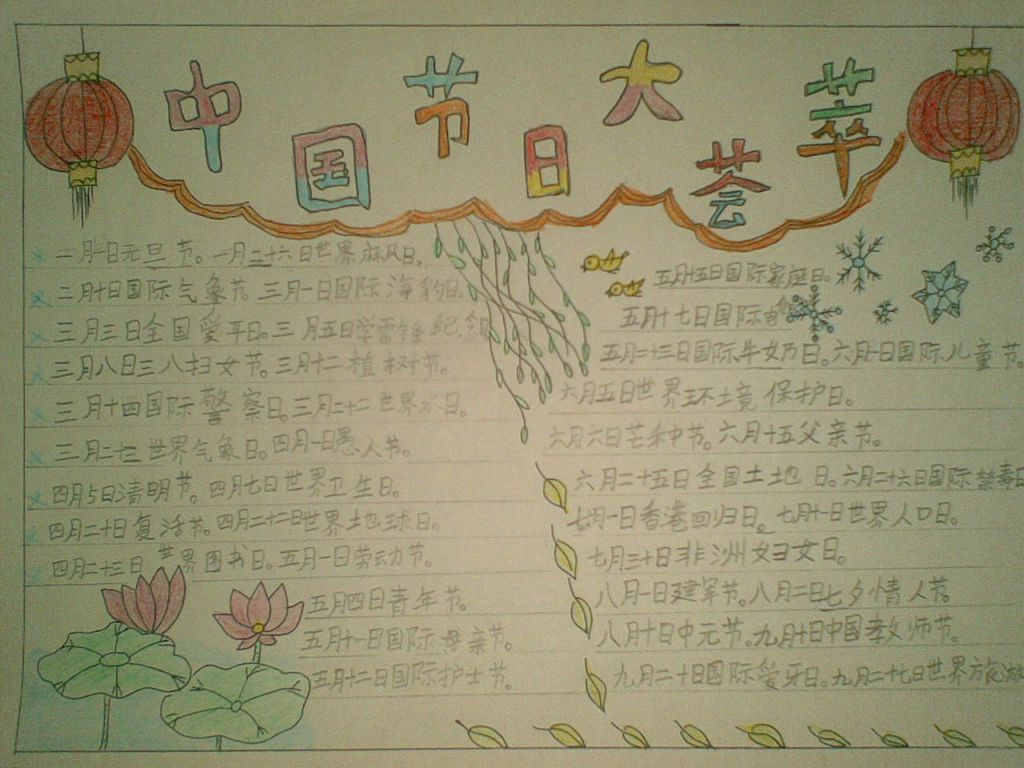 中国节日大荟萃
一月一日元旦节。一月二十六日世界麻风日。
二月十日国际气象节。三月一日国际海豹日。
三月三日全国爱耳日。三月五日学雷锋纪念
三月八日三八妇女节。三月十二植树节。
三月十四国际警察日。三月二十二世界水日。
三月二十三世界气象日。四月一日愚人节。
四月5日清明节。四月七日世界卫生日。
四月二十日复活节。四月二十二日世界地球日。
四月二十三日世界图书日。五月一日劳动节。
五月四日青年节。
五月十一日国际母亲节。
五月十二日国际护士节。
五月十五日国际家庭日。
五月十七日国际
五月二十三日国际牛奶日。六月一日国际儿童节。
六月五日世界环境保护日。
六月六日芒种节。六月十五父亲节。
六月二十五日全国土地日。六月二十六日国际禁毒日
七月一日香港回归日。七月十一日世界人口日。
七月三十日非洲妇女日。
八月一日建军节。八月二日七夕情人节。
八月十日中元节。九月十日中国教师节。
九月二十日国际爱牙日。九月二十七日世界旅游